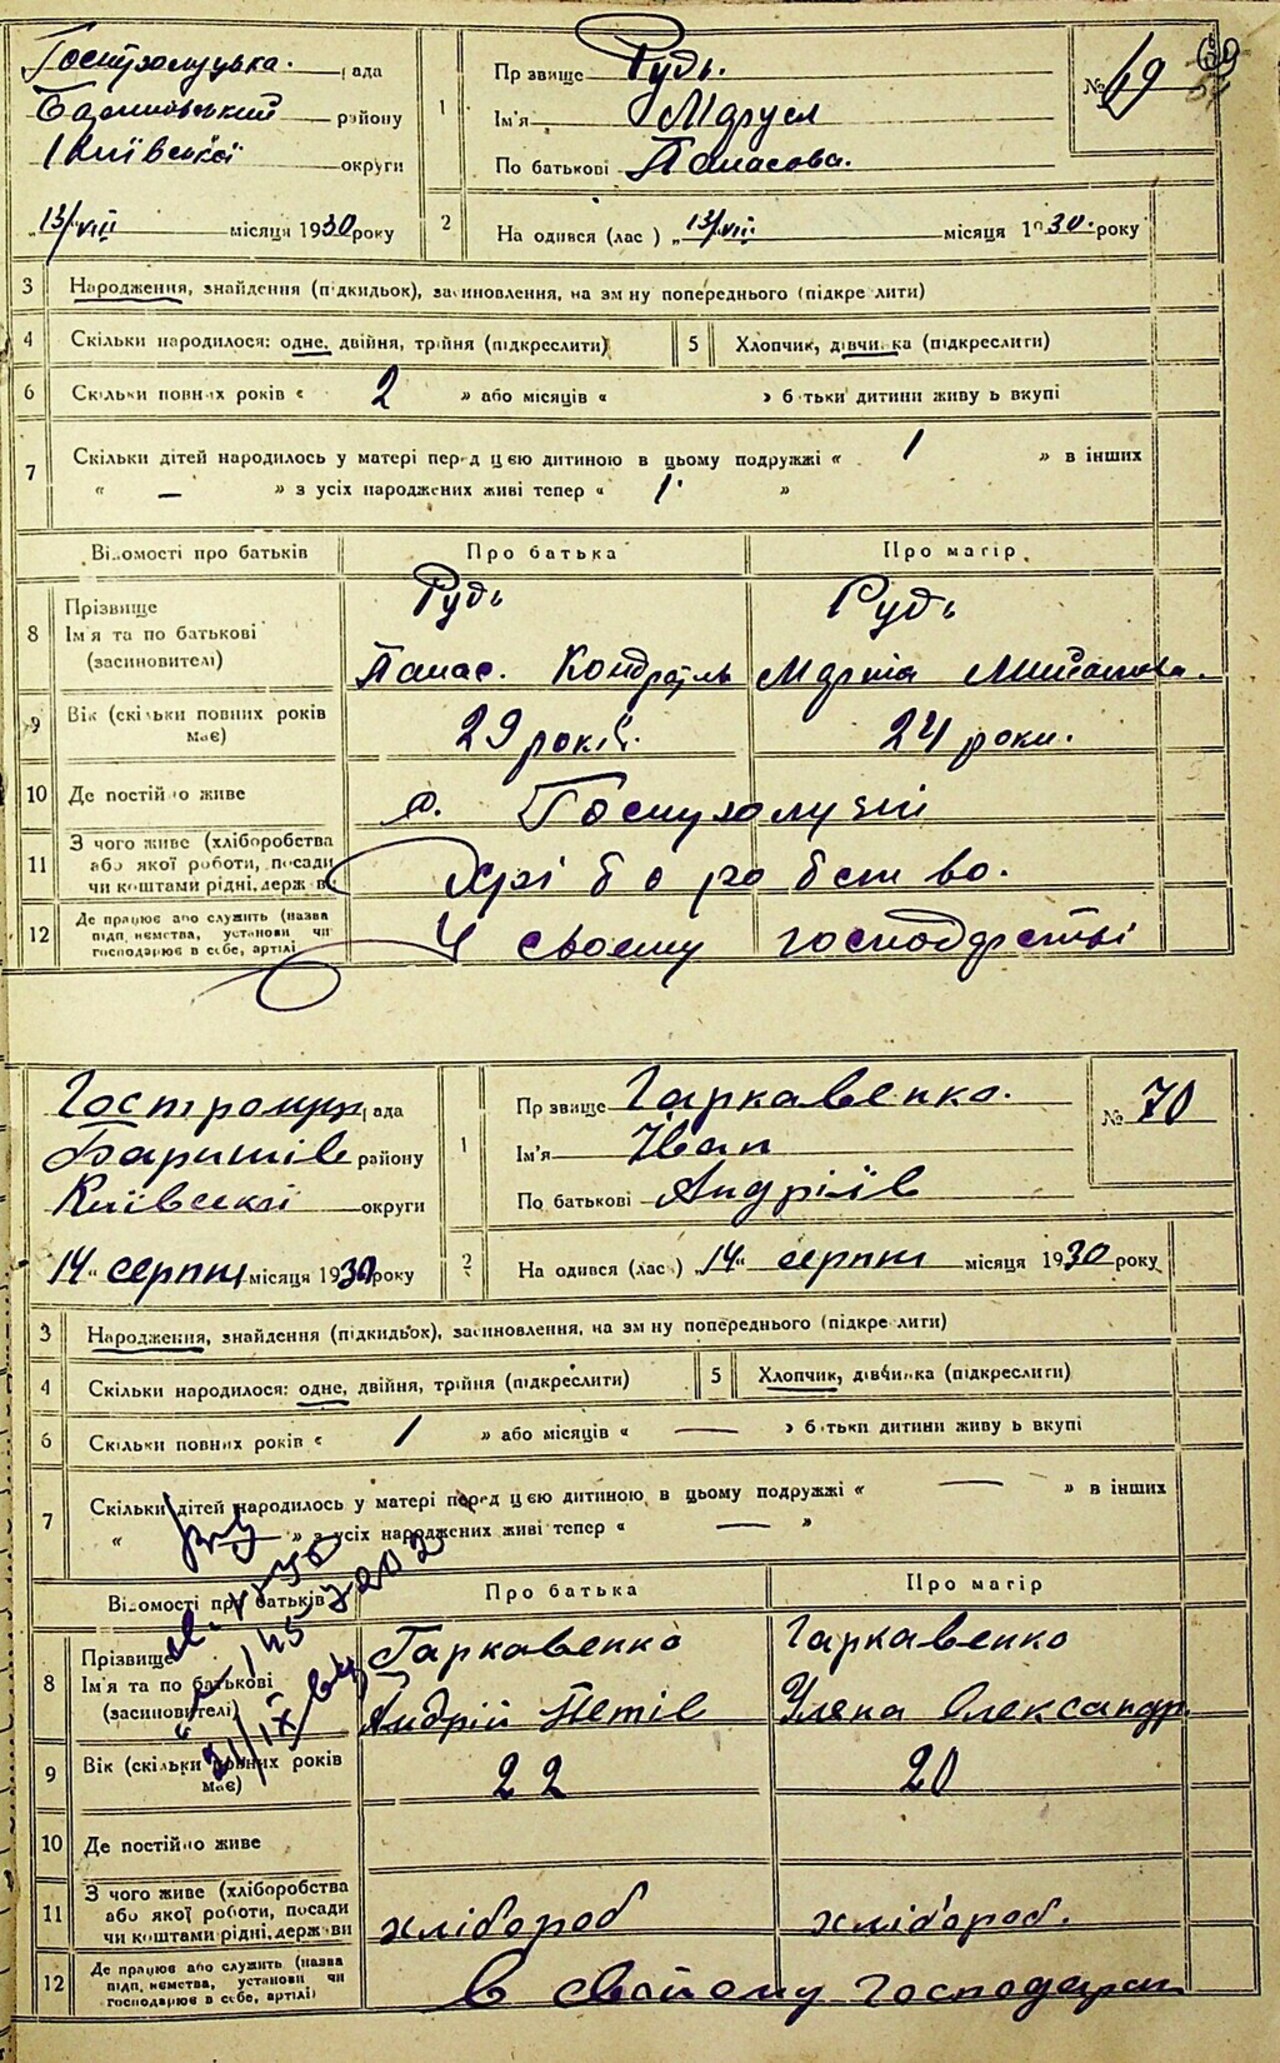 Гостролуцька. рада
Баришівський району
Київської округи
„13/VIII місяця 1930 року
1
Прзвище Рудь.
Ім'я Маруся
По батькові Панасова.
№ 69
69
2
На одився (лас ) „13/VIII. місяця 1930. року
3 Народження, знайдення (підкидьок), засиновлення, на зм ну попереднього (підкре лити)
4 Скільки народилося: одне, двійня, трійня (підкреслити)
5 Хлопчик, дівчинка (підкреслити)
6 Скільки повних років « 2 » або місяців « » б тьки дитини живу ь вкупі
7 Скільки дітей народилось у матері перед цею дитиною в цьому подружжі « 1 » в інших
« — » з усіх народжених живі тепер « 1. »
Відомості про батьків Про батька Про матір
8 Прізвище Ім'я та по батькові (засиновителі)
Рудь Рудь
Панас. Кондратів Марта
9 Вік (скільки повних років має) 29 років. 24 роки.
10 Де постійно живе с. Гостролуччі
11 З чого живе (хліборобства або якої роботи, посади чи коштами рідні, держ ви
Хліборобство.
12 Де працює або служить (назва підп иємства, установи чи господарює в себе, артілі
У своєму господарстві
Гостролуц рада
Баришів району
Київської округи
14" серпня місяця 1930 року
1
Пр звище Гаркавенко.
Ім'я Іван
По батькові Андріїв
№ 70
2
На одився (лас ) „14" серпня місяця 1930 року
3 Народження, знайдення (підкидьок), засиновлення, на зм ну попереднього (підкре лити)
4 Скільки народилося: одне, двійня, трійня (підкреслити)
5 Хлопчик, дівчинка (підкреслити)
6 Скільки повних років « 1 » або місяців « — » б тьки дитини живу ь вкупі
7 Скільки дітей народилось у матері перед цею дитиною в цьому подружжі « — » в інших
« » з усіх народжених живі тепер « — »
Відомості про батьків Про батька Про матір
8 Прізвище Ім'я та по батькові (засиновителі)
Гаркавенко Гаркавенко
Андрій Петів Уляна Олександр.
9 Вік (скільки повних років має) 22 20
10 Де постійно живе
11 З чого живе (хліборобства або якої роботи, посади чи коштами рідні, держ ви
хлібороб хлібороб.
12 Де працює або служить (назва підп иємства, установи чи господарює в себе, артілі)
в свойому господарст